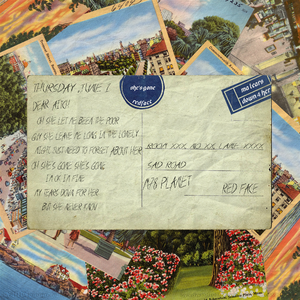 THURSDAY, JUNE 1
DEAR
OH SHE LET ME BEEN THE POOR
WHY SHE LEAVE ME LONG IN THE LONELY
NIGHT, JUST NEED TO FORGET ABOUT HER
OH SHE'S GONE SHE'S GONE
I'M OF I'M FINE
MY TEARS DOWN FOR HER
BUT SHE NEVER KNOW
she's gone
redface
ma tears
down 4 her
ROOM XXX NO.XX LANE XXXX
SAD ROAD
PLANET
RED FACE